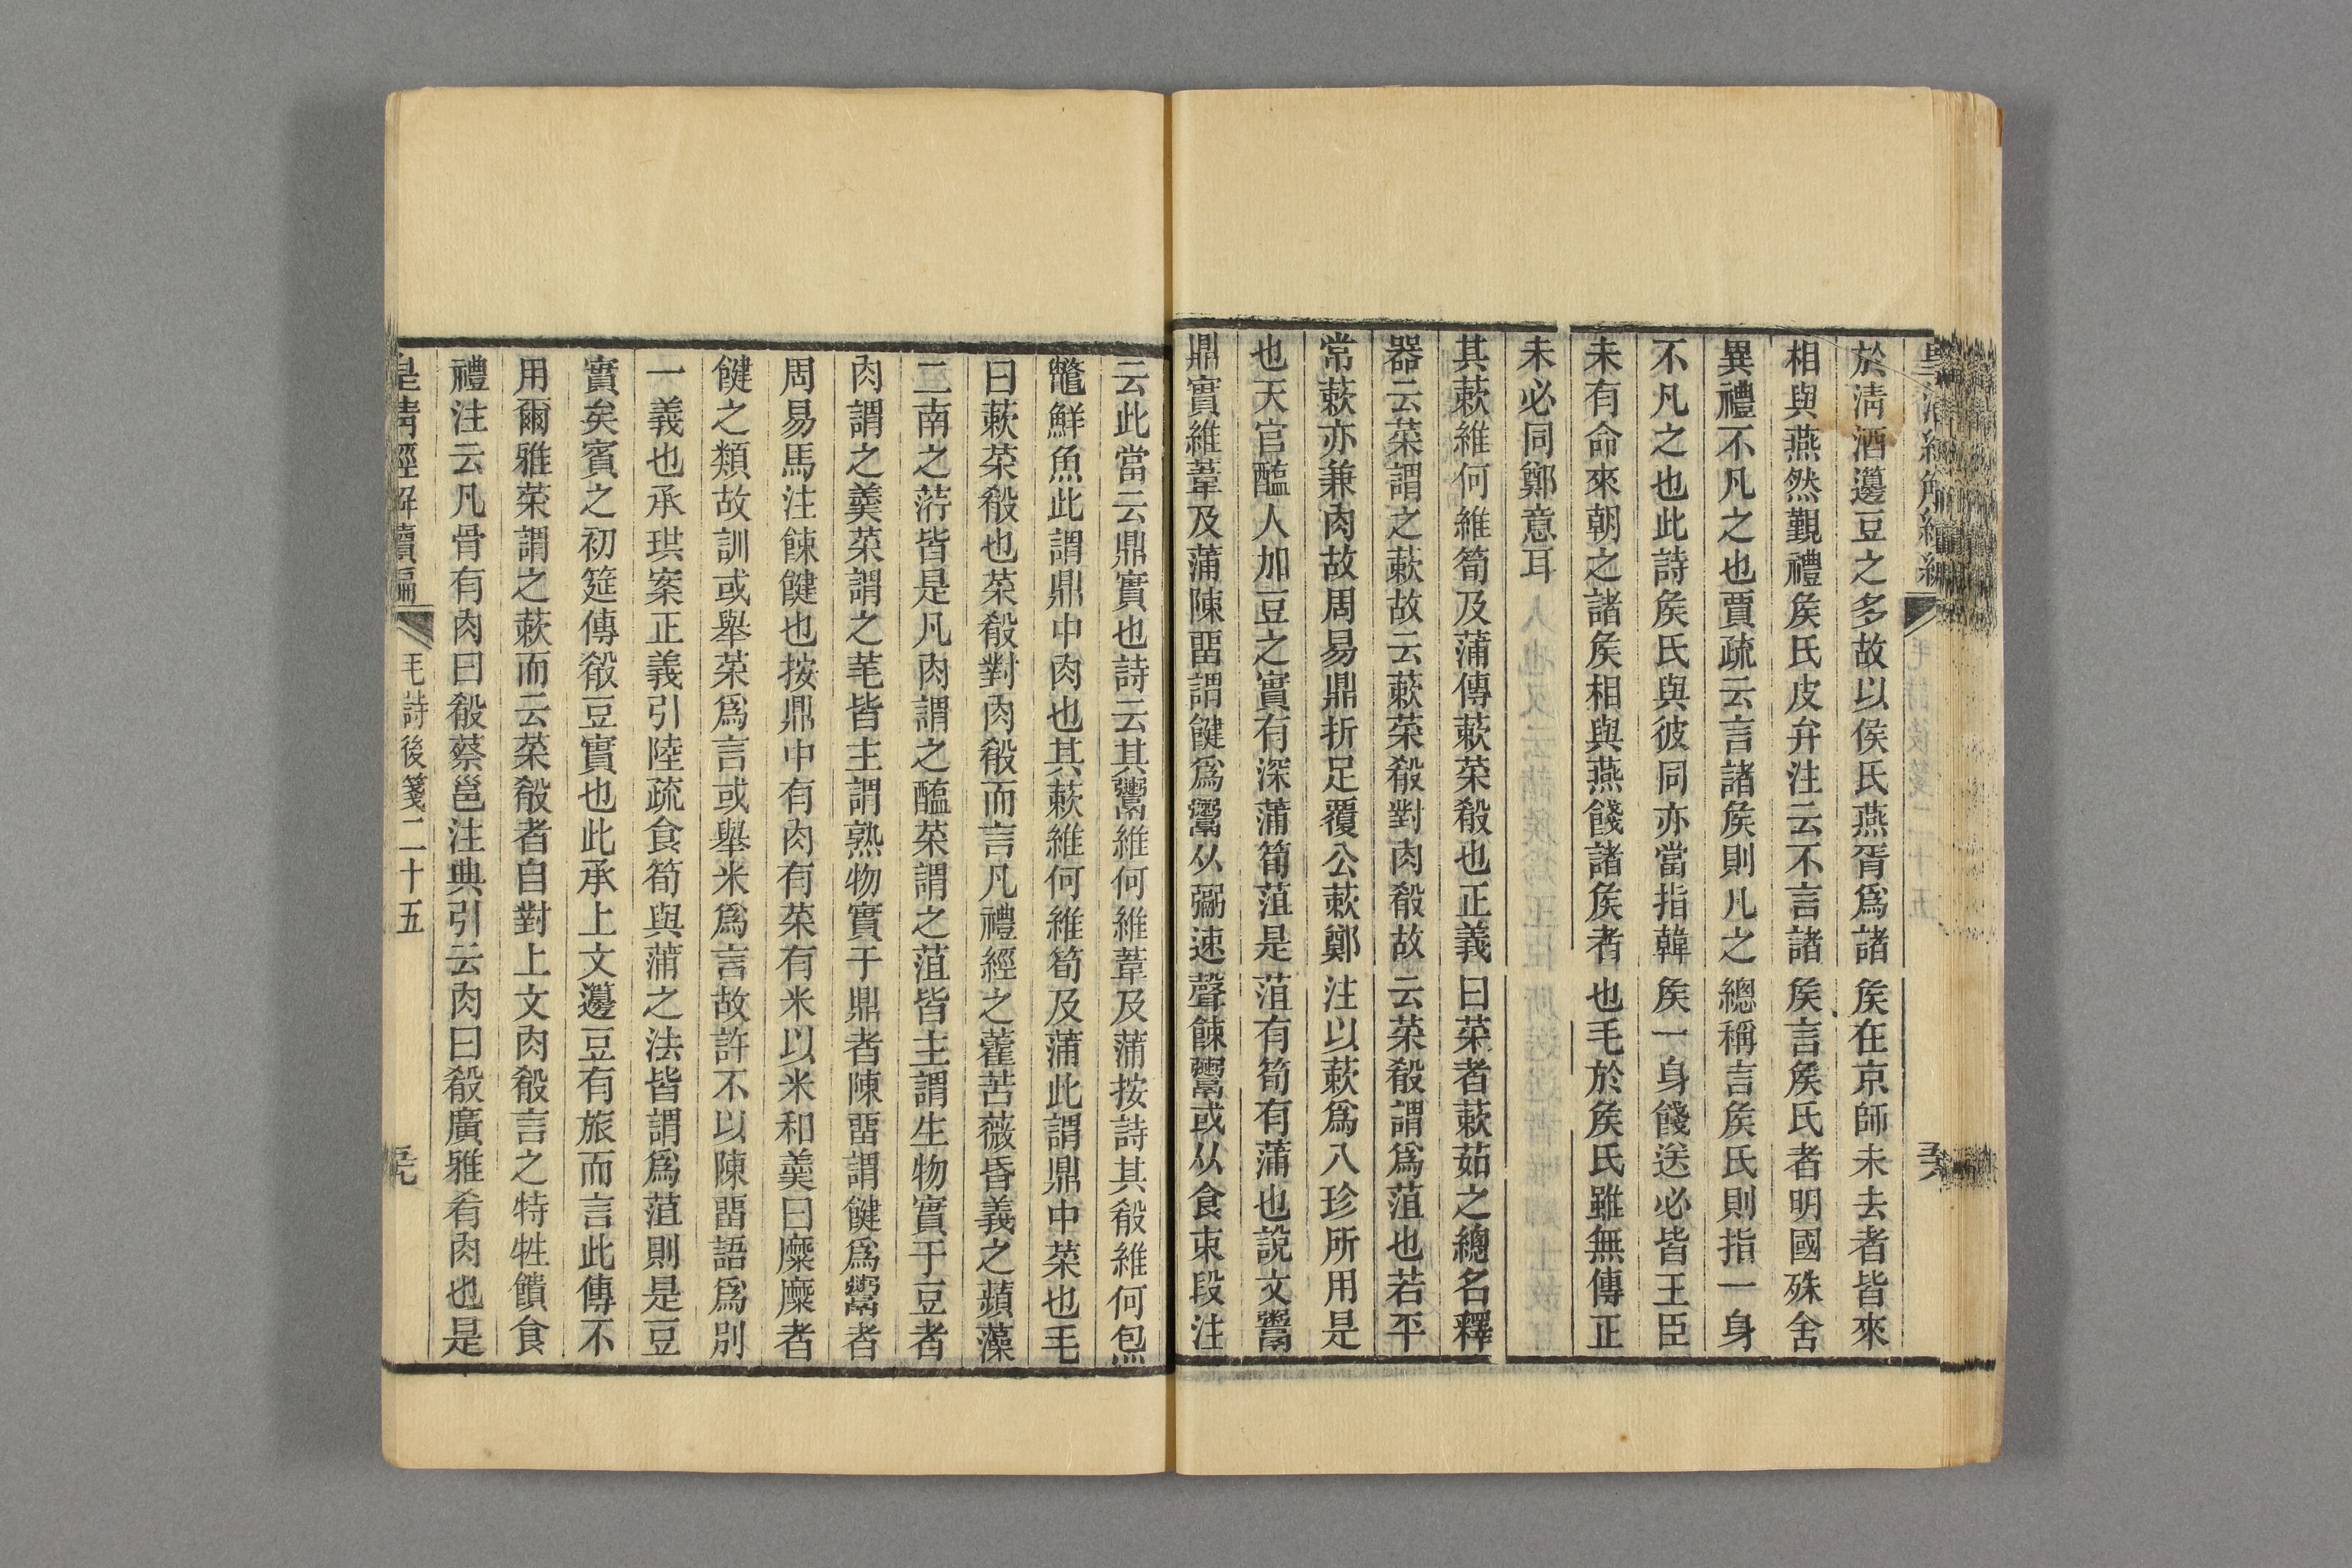 於淸酒籩豆之多故以侯氏燕胥爲諸矦在京師未去者皆來
相與燕然觐禮矦氏皮弁注云不言諸矦言矦氏者明國殊舍
異禮不凡之也賈疏云言諸矦則凡之總稱言矦氏則指一身
不凡之也此詩矦氏與彼同亦當指韓矦一身餞送必皆王臣
未有命來朝之諸矦相與燕餞諸矦者也毛於矦氏雖無傳正
未必同鄭意耳
其蔌維何維筍及蒲傳蔌菜殽也正義曰菜者蔌茹之總名釋
器云菜謂之蔌故云蔌菜殽對肉殽故云菜殽謂爲菹也若平
常蔌亦兼肉故周易鼎折足覆公蔌鄭注以蔌爲八珍所用是
也天官醢人加豆之實有深蒲筍菹是菹有筍有蒲也說文鬻
鼎實維葦及蒲陳畱謂䭈爲鬻从䰜速聲餗鬻或从食束段注
云此當云鼎實也詩云其鬻維何維葦及蒲按詩其殽維何炰
鼈鮮魚此謂鼎中肉也其蔌維何維筍及蒲此謂鼎中菜也毛
曰蔌菜殽也菜殽對肉殽而言凡禮經之藿苦薇昏義之蘋藻
二南之荇皆是凡肉謂之醢菜謂之菹皆主謂生物實于豆者
肉謂之羹菜謂之芼皆主謂熟物實于鼎者陳畱謂䭈爲鬻者
周易馬注餗䭈也按鼎中有肉有菜有米以米和羹曰糜糜者
䭈之類故訓或舉菜爲言或舉米爲言故許不以陳畱語爲別
一義也承珙案正義引陸疏食筍與蒲之法皆謂爲菹則是豆
實矣賓之初筵傳殽豆實也此承上文籩豆有旅而言此傳不
用爾雅菜謂之蔌而云菜殽者自對上文肉殽言之特牲饋食
禮注云凡骨有肉曰殽蔡邕注典引云肉曰殽廣雅肴肉也是
皇淸經解續編 毛詩後箋二十五